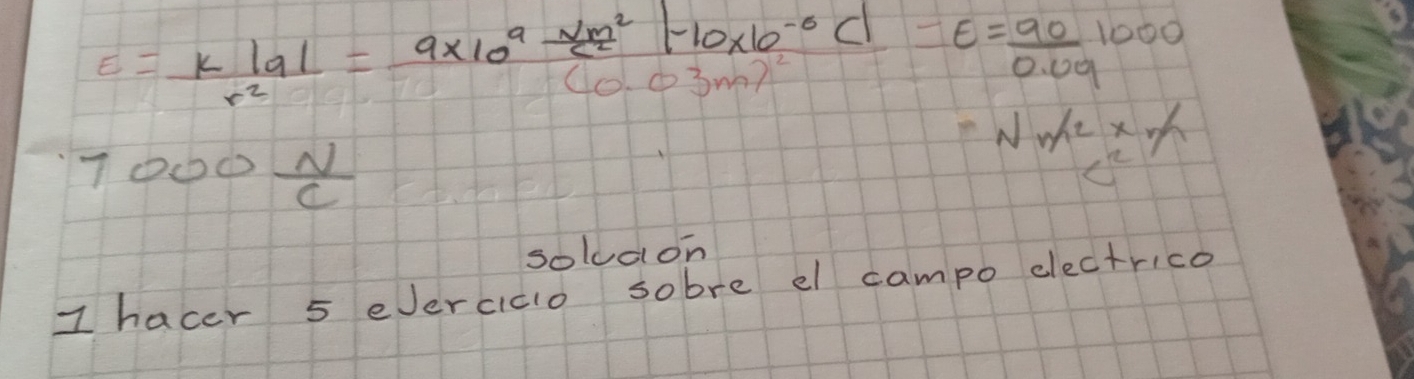 E = K |q| / r² = 9x10⁹ Nm²/C² |-10x10⁻⁶ C| / (0.03m)² = E = 90/0.09 1000
N m² x m / C²
7000 N/C
solución
1 hacer 5 eJercicio sobre el campo electrico